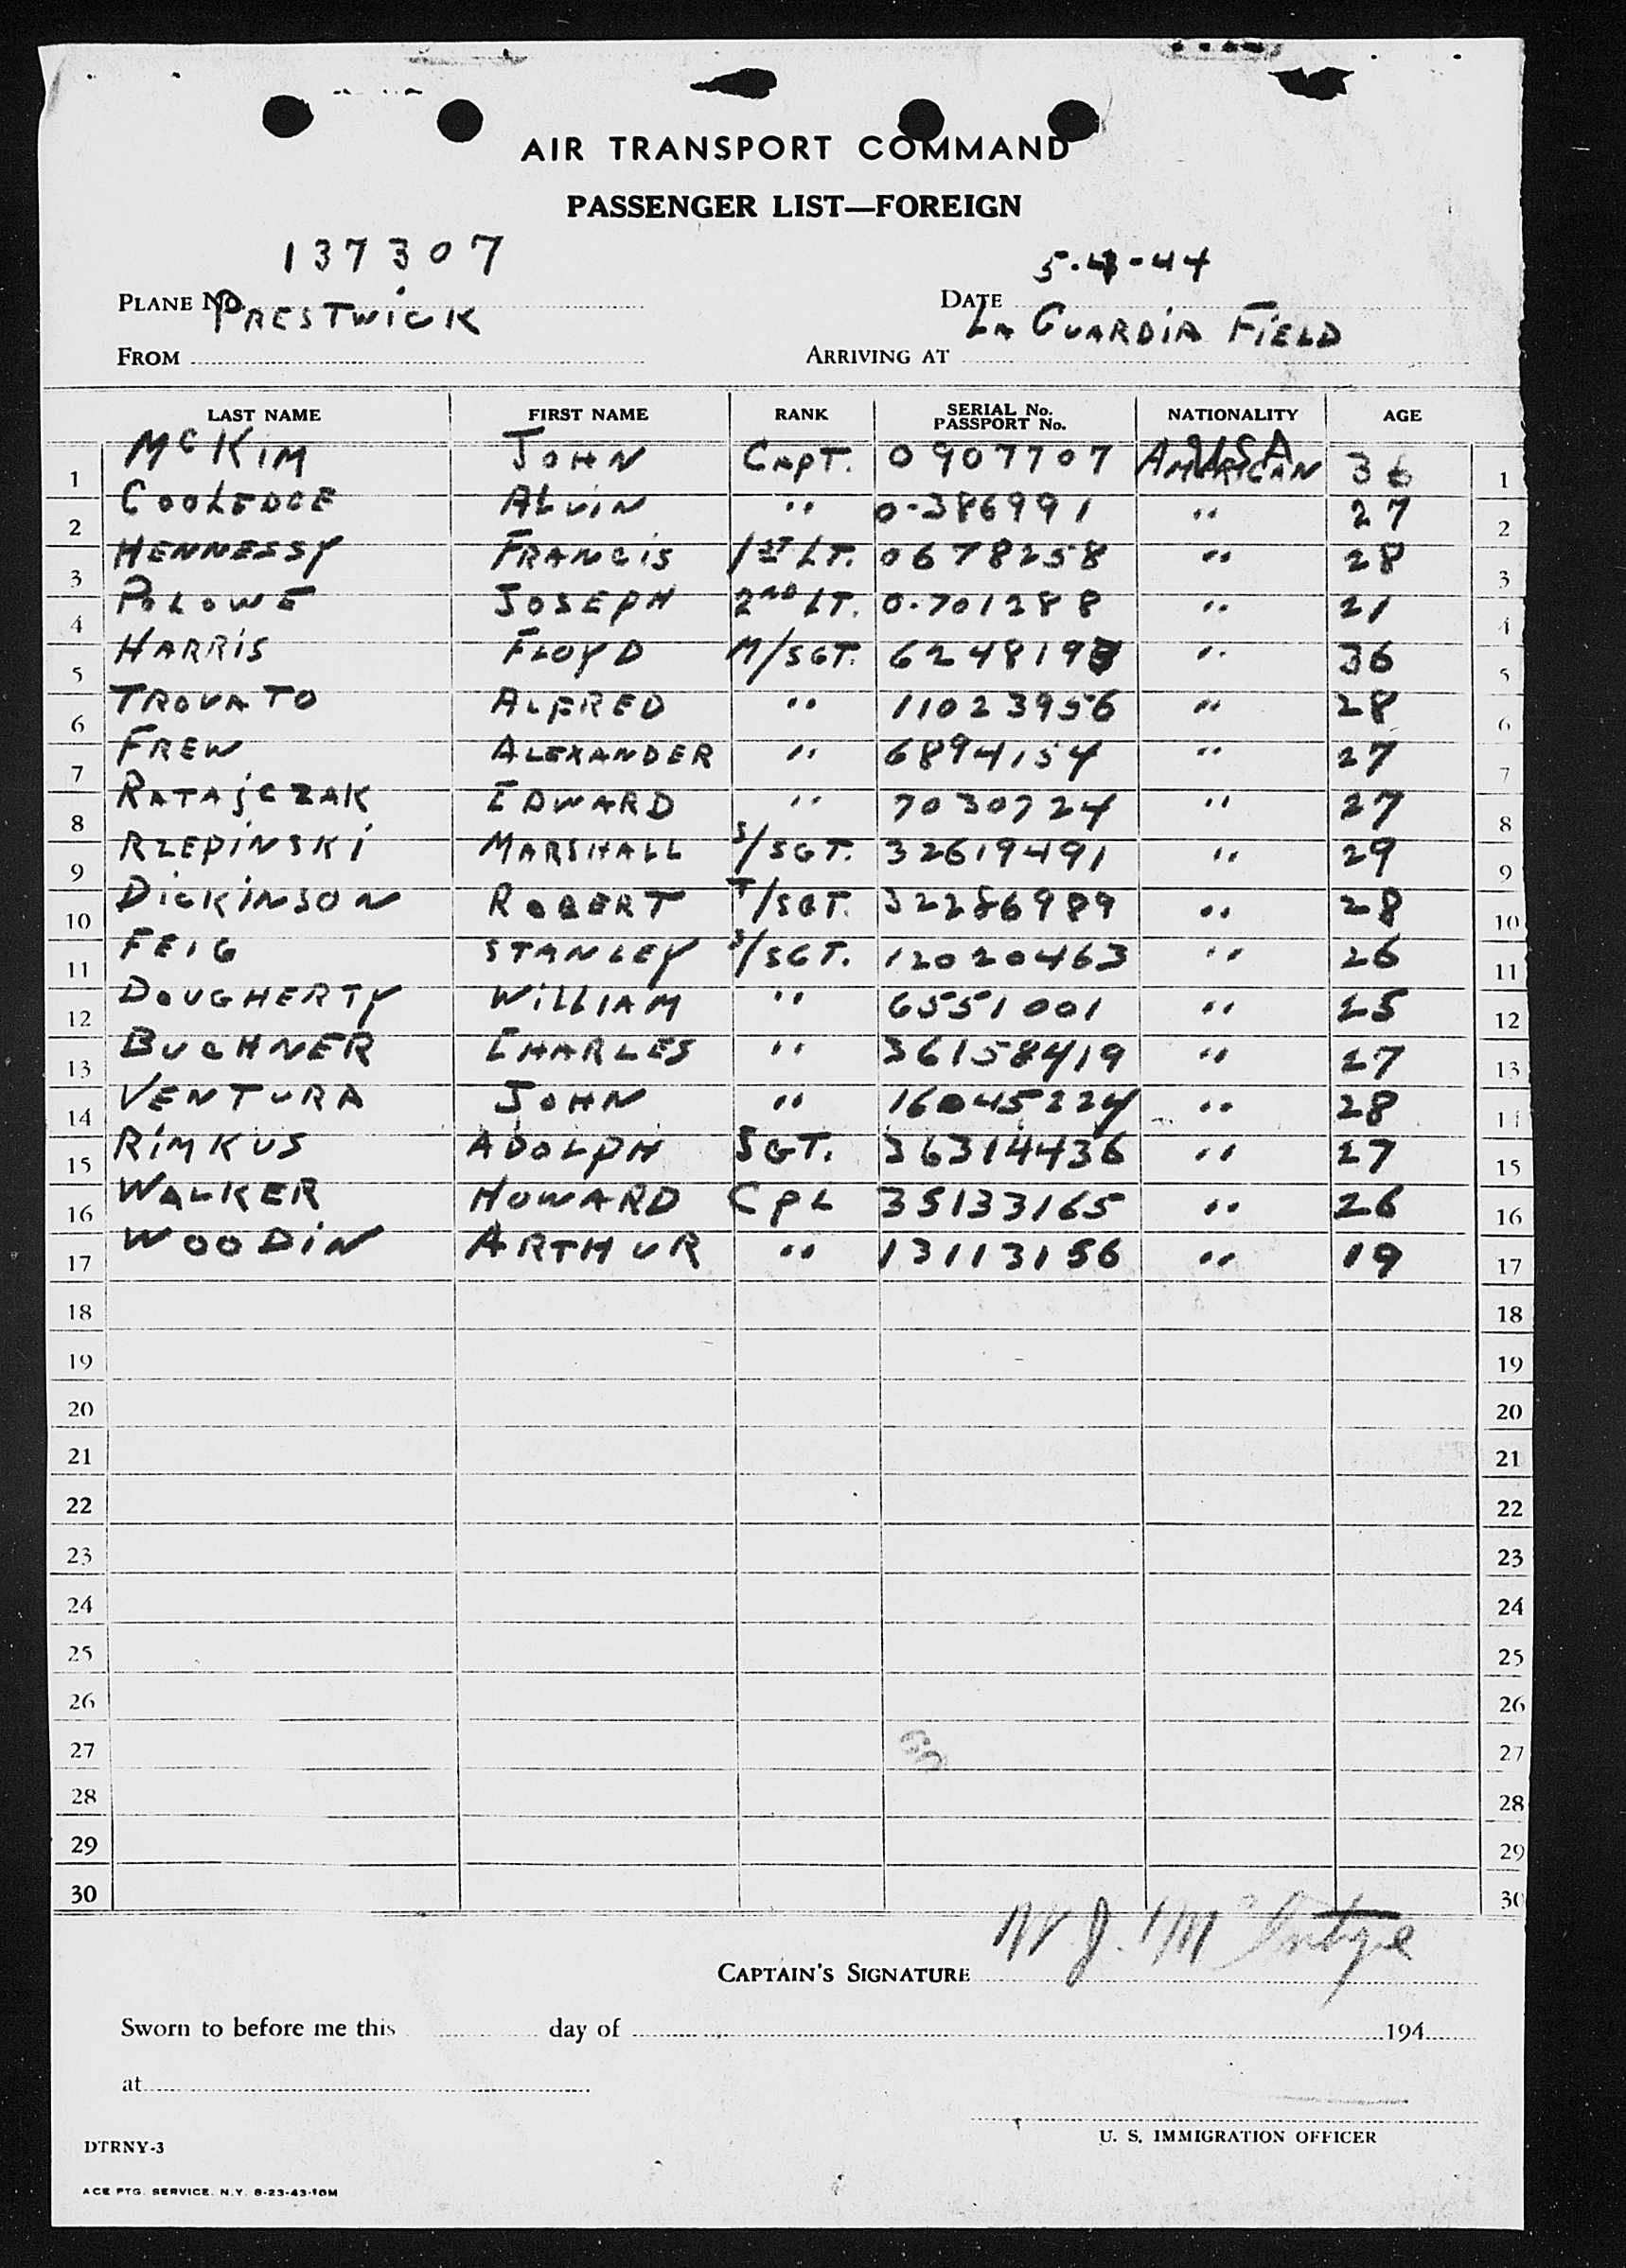 AIR TRANSPORT COMMAND
PASSENGER LIST—FOREIGN
137307 5-4-44
PLANE NO. DATE
PRESTWICK LA GUARDIA FIELD
FROM ARRIVING AT
LAST NAME FIRST NAME RANK SERIAL No. PASSPORT No. NATIONALITY AGE
USA
1 McKIM JOHN CAPT. 0907707 AMERICAN 36 1
2 COOLEDGE ALVIN " 0-386991 " 27 2
3 HENNESSY FRANCIS 1ST LT. 0678258 " 28 3
4 POLOWE JOSEPH 2ND LT. 0-701288 " 21 4
5 HARRIS FLOYD M/SGT. 6248193 " 36 5
6 TROVATO ALFRED " 11023956 " 28 6
7 FREW ALEXANDER " 6894154 " 27 7
8 RATAjCZAK EDWARD " 7030724 " 27 8
9 RZEPINSKI MARSHALL S/SGT. 32619491 " 29 9
10 DICKINSON ROBERT T/SGT. 32286989 " 28 10
11 FEIG STANLEY S/SGT. 12020463 " 26 11
12 DOUGHERTY WILLIAM " 6551001 " 25 12
13 BUCHNER CHARLES " 36158419 " 27 13
14 VENTURA JOHN " 16045224 " 28 14
15 RIMKUS ADOLPH SGT. 36314436 " 27 15
16 WALKER HOWARD CPL 35133165 " 26 16
17 WOODIN ARTHUR " 13113156 " 19 17
18 18
19 19
20 20
21 21
22 22
23 23
24 24
25 25
26 26
27 27
28 28
29 29
30 30
CAPTAIN'S SIGNATURE W. J. McIntyre
Sworn to before me this day of 194
at
U. S. IMMIGRATION OFFICER
DTRNY-3
ACE PTG. SERVICE. N.Y. 8-23-43-10M